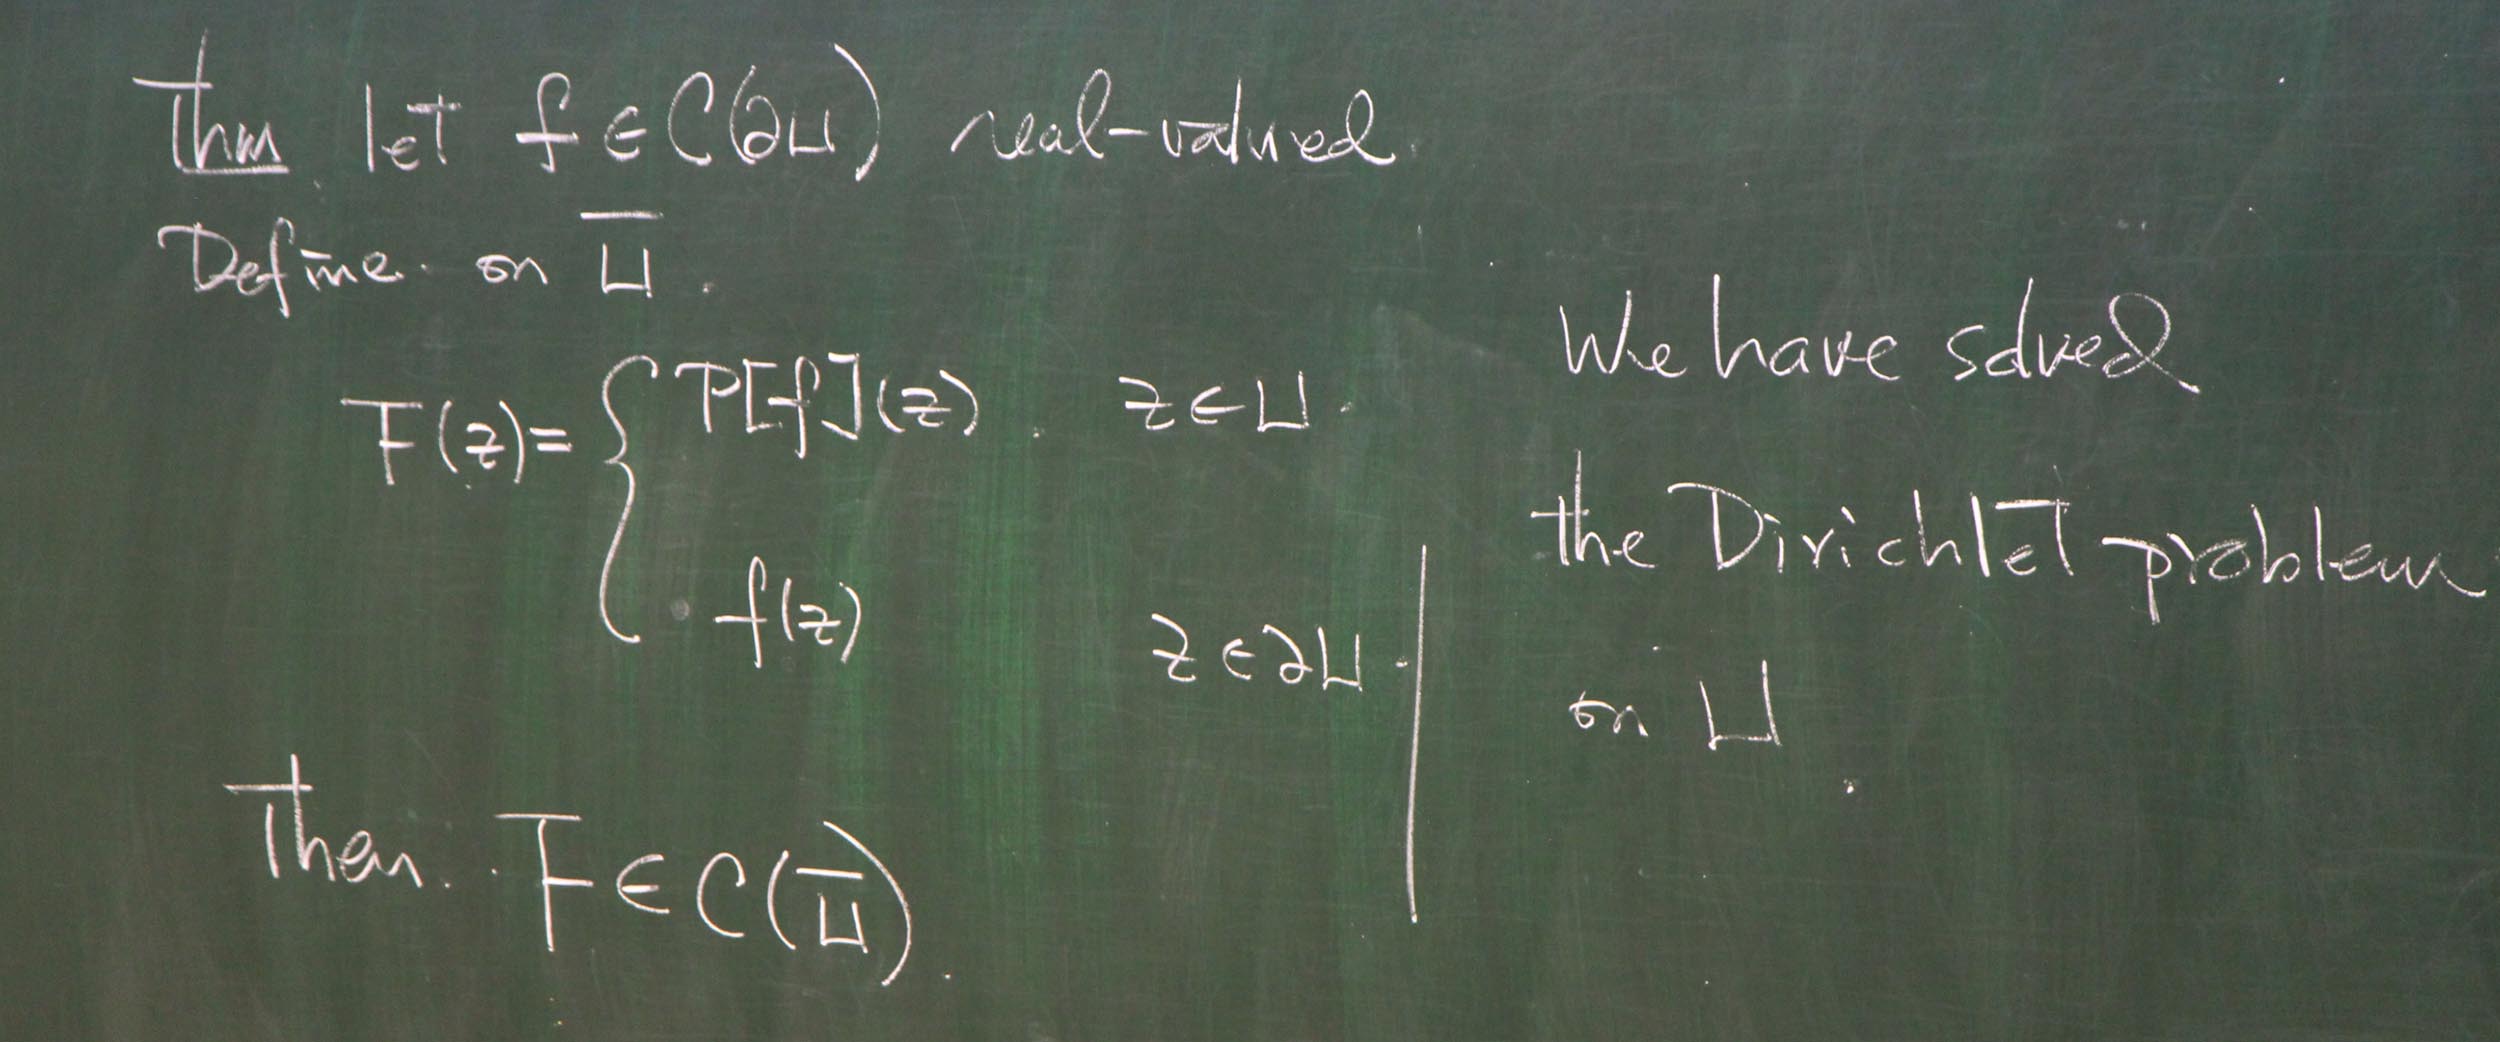 Thm let f ∈ C(∂U) real-valued.
Define on U̅.
F(z) = { P[f](z) z ∈ U.
f(z) z ∈ ∂U.
Then F ∈ C(U̅).
We have solved
the Dirichlet problem
on U.